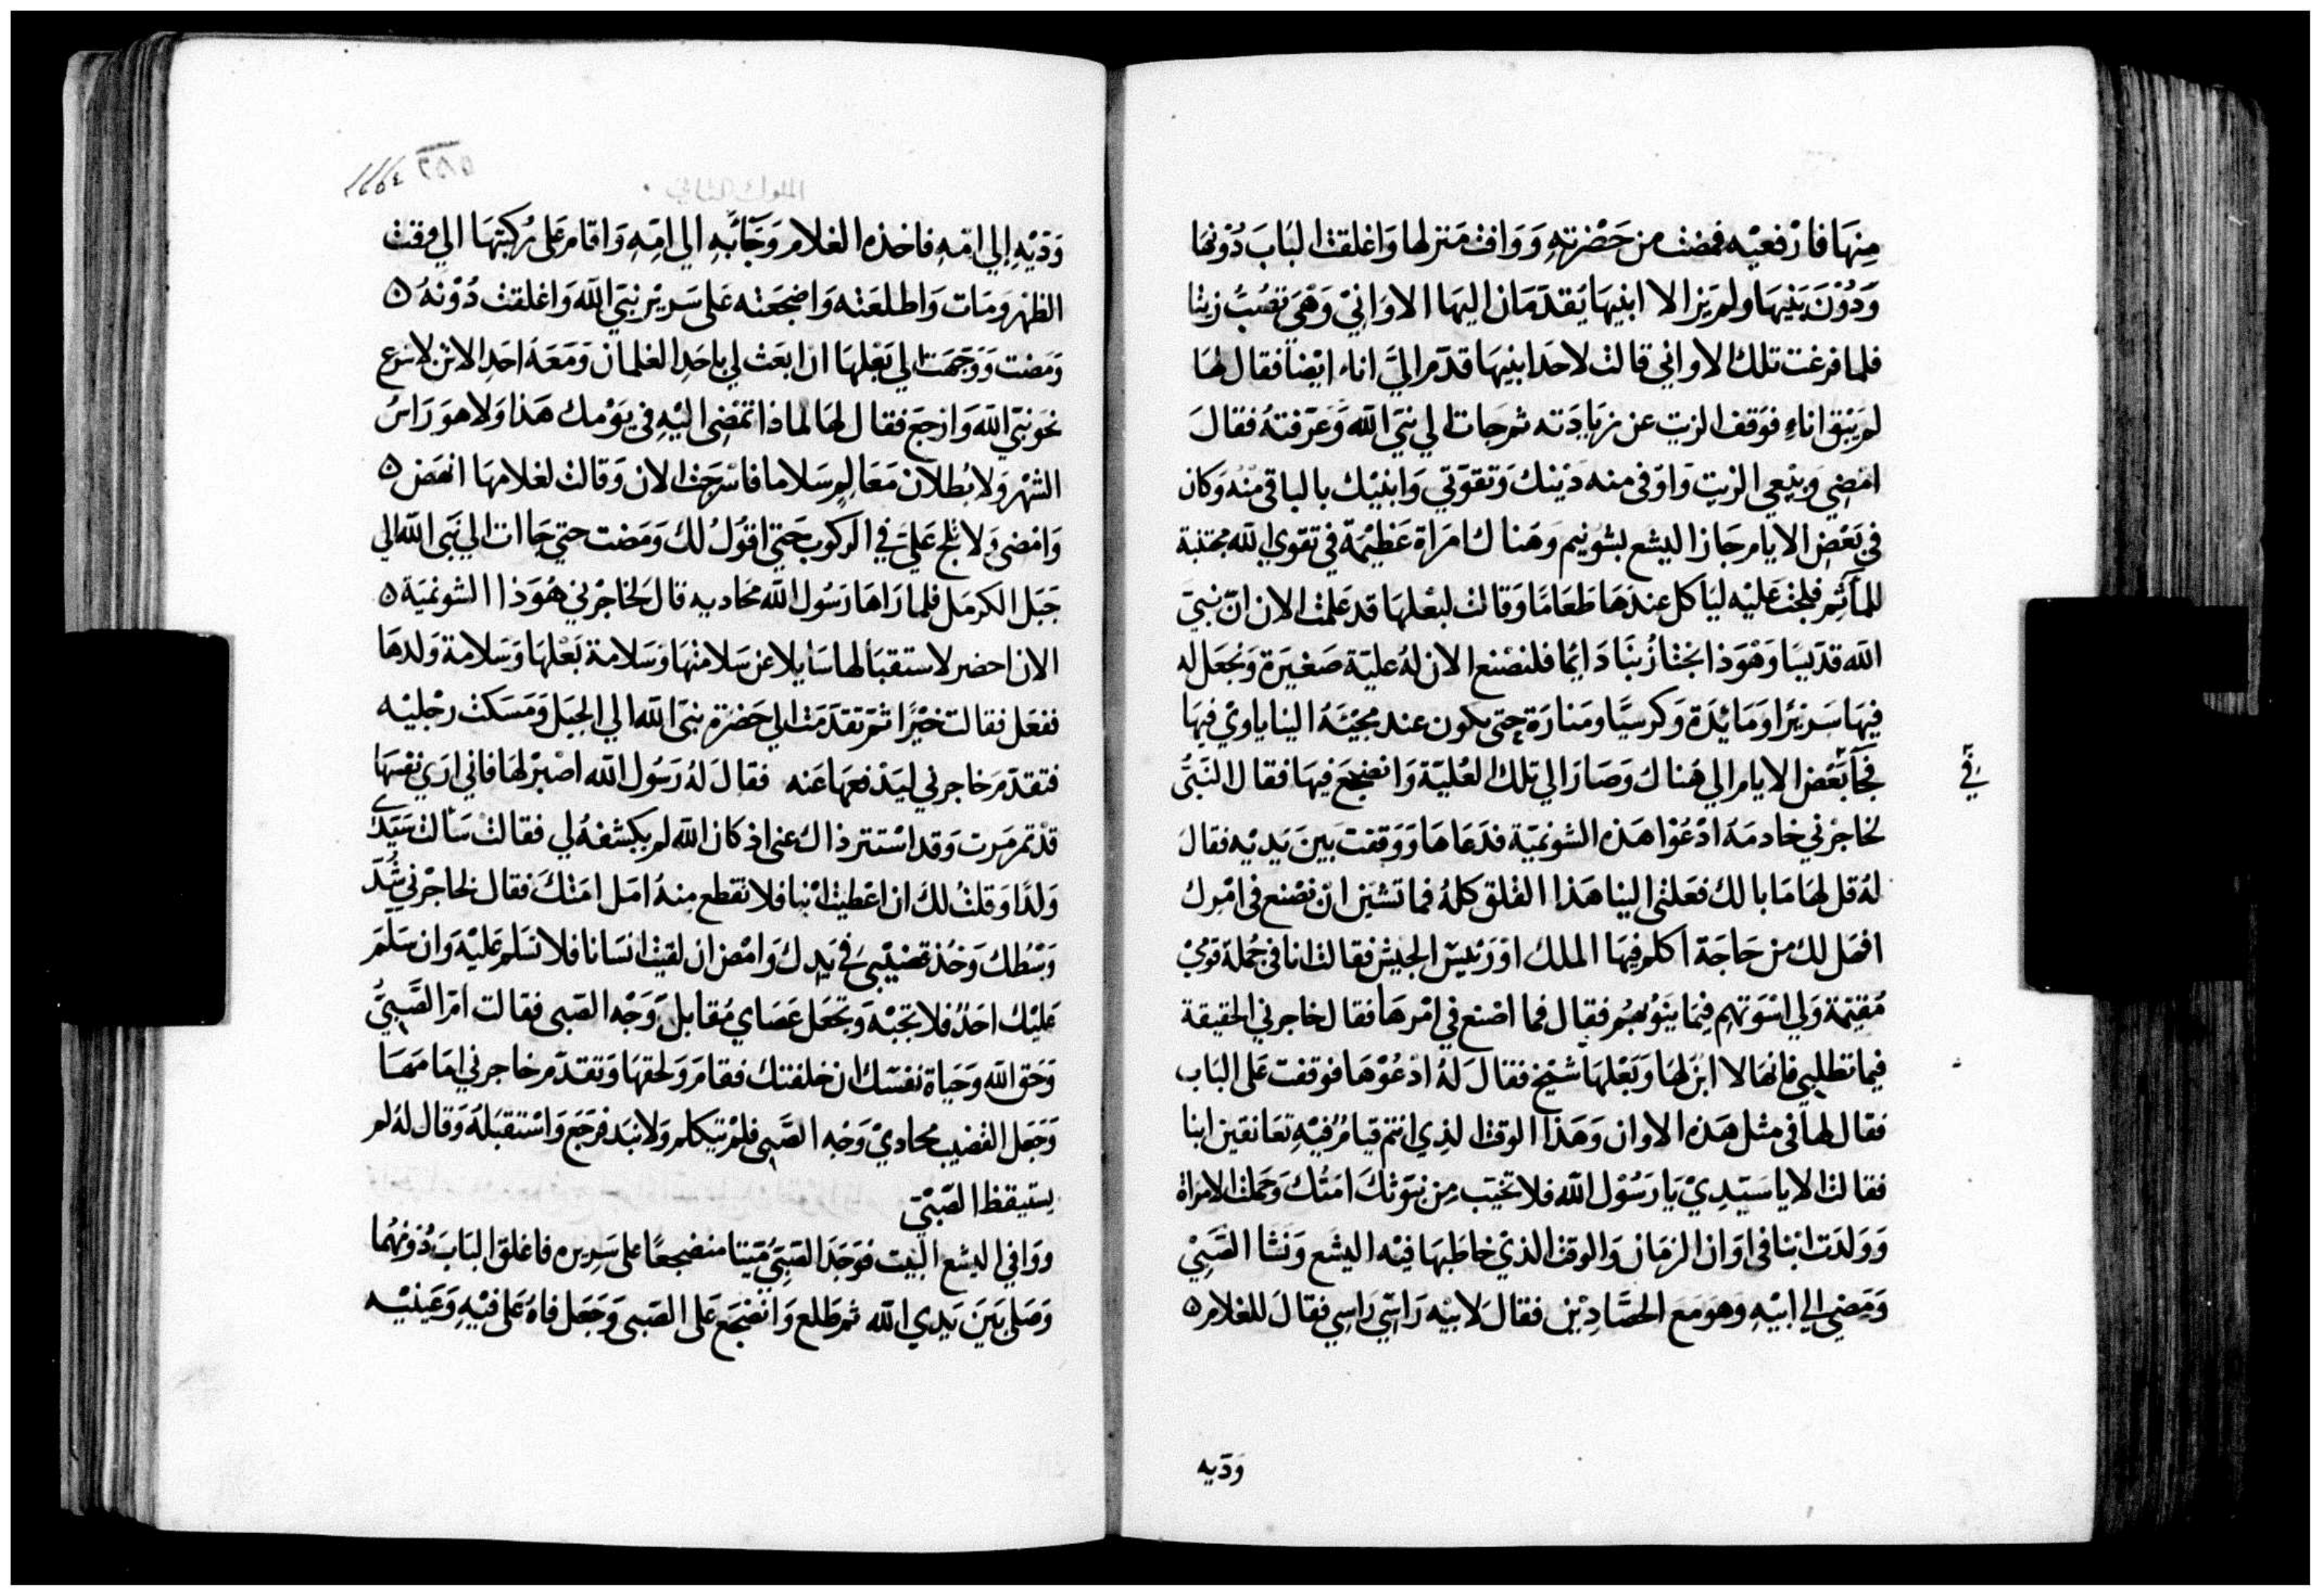 مِنهَا فارْفعيْه فمضت من حَضْرَتِهِ وَوَافت مَنزلها وَاغلقت البَابَ دُوْنهَا
وَدُوْنَ بَنيْهَا ولم يَزالا ابنيهَا يَقدّمَان اليهَا الاوَانِيْ وَهْيَ تصُبّ زيتا
فلما فرغت تلك الاواني قالت لاحَد ابنيهَا قدّم الىَّ اناء ايْضاً فقال لهَا
لم يَبْق اناءٍ فوَقف الزيت عن زيَادَته ثم جات الي نبيَ الله وَعَرّفتهُ فقالَ
امْضِي وبيْعي الزيت وَاوْفى منه دَيْنك وَتقوّتي وَابنيْك بالباقى منْه وَكان
في بَعْض الايام جَاز اليشع بشونيم وهَناك امرَاة عَظيْمَة في تقوي الله مجتنبة
للمآثِم فلجت عَليْه ليَاكل عندهَا طَعَامًا وَقالت لبَعْلهَا قد عَلمْت الان انّ نبيَ
الله قدّيسا وَهْوَذا يجْتازُ بنَا دَايمًا فلنصْنع الان لهُ عليّة صَغيرَة وَنجعَل له
فيهَا سَريْرا وَمَايْدَة وَكرسيًا ومَنارَة حتى يكون عند مجيْئهُ الينا ياوِيْ فيهَا
فجَآ بَعْض الايام الي هَناك وَصَارَ الي تلك العُليّة وَانضجعَ فيهَا فقال النبَّى
في
لخاجرْني خادمَهُ ادْعُوْا هَذه الشونميّة فدَعَاهَا وَوَقفت بَينَ يَديْه فقالَ
لهُ قل لهَا مَا بالك فعَلتي الينا هَذا القْلق كلهُ فما تشئين ان نصْنع فى امْرك
افهَل لك من حَاجَة اكلم فيهَا الملك اوْ رَئيسّ الجيْش فقالت انا في جُملة قومِيْ
مُقيْمَة وَلي اسْوَتهم فيْمَا ينوُبهُم فقال فما اصْنع في امْرهَا فقال خاجرني الحقيقة
فيما تطلبي فانهَا لا ابْن لهَا وَبَعْلهَا شيْخ فقال لَهُ ادْعُوْهَا فوقفت عَلى البَاب
فقال لهآ فى مثل هَذه الاوان وَهَذا الوقت الذِي انتم قيَامٌ فيْهِ تعَانقين ابنا
فقالت لا يا سَيّدِيْ يَا رَسُوْل الله فلا تخيّب مِن نبوّتكَ امَتُك وَحَملت الامرَاة
وَوَلدَت ابْنا في اوَان الزمَان وَالوقت الذيْ خاطَبهَا فيْه اليشَع وَنَشا الصَّبِيْ
وَمَضي الي ابيْهِ وَهوَ مَعَ الحصَّادِيْن فقالَ لابيْه رَاسّي رَاسِي فقالَ للغلام ۵
وَدّيه
وَدّيْهِ إلي امّهِ فاخذه الغلام وَجَآءَ بهِ الي امّهِ وَاقام عَلى رُكبتهَا الي وقت
الظهر وَمَات وَاطلعَته وَاضجعَته عَلى سَريْر نبيّ الله وَاغلقت دُوْنهُ ۵
وَمَضت وَوَجهَت الي بَعْلهَا ان ابعَث لي باحَد الغلمان وَمَعَهُ احَد الاتن لاسْرع
نحو نبيّ الله وَارْجَع فقال لهَا لماذا تمضى اليْهِ فى يَوْمك هَذا وَلا هوَ رَاسُ
الشهْر وَلا بُطلان مَعَالِم سَلاما فاسْرَجَت الاتان وَقالت لغلامهَا انهَض ۵
وَامْضى وَلا تلج عَليَّ في الركوب حَتي اقوُلُ لكَ وَمَضت حتي جَاات الي نبَيّ الله الي
جَبَل الكرمَل فلما رَاهَا رَسُول الله محَاديه قال لخاجرْني هُوَذا الشونميَة ۵
الان احضر لاستقبَالها سَايلا عن سَلامتهَا وَسَلامة بَعْلهَا وَسَلامة وَلدهَا
ففعَل فقالت خيْرًا ثمّ تقدّمَت الي حَضرَة نبيّ الله الي الجبَل وَمَسَكت رجْليْه
فتقدّم خاجرني ليَدْفعهَا عَنه فقالَ لهُ رَسُول الله اصْبرْ لهَا فاني ارَي نفسهَا
قدْ تمرمَرت وَقد اسْتتر ذاك عنى اذ كان الله لم يكشفهُ لي فقالت سَألت سَيّدي
وَلدًا وَقلتُ لكَ ان اعْطيت ابْنا فلا تقطع منهُ امَل امَتكَ فقال لخاجرْني شُدّ
وَسْطك وَخُذ قضيْبى في يَدك وَامْض ان لقيت انسَانا فلا تسَلم عَليْه وَان سَلّمَ
عَليْك احَدٌ فلا تجبْه وَتجْعَل عَصَاي مُقابل وَجْه الصَبى فقالت امّ الصَّبِيُّ
وَحَق الله وَحَيَاة نفسَك ان خلفتك فقامَ وَلحقهَا وَتقدّم خاجرني امَامَهَا
وَجَعَل القضيب محَاديْ وَجْه الصَّبى فلمْ يتكلم وَلا نبَد فرَجَعَ وَاسْتقبَلهُ وَقال لهُ لم
يستيقظ الصَّبيّ
ووافي اليشع البَيت فوَجَدَ الصَّبِيّ مَيّتا منضجعًا على سَريره فاغلق البَابَ دُوْنهُما
وَصَلى بَيَن يَدي الله ثم طَلع وَانضجَع عَلى الصَبى وَجَعَل فاهُ عَلى فيْهِ وَعَينيْه